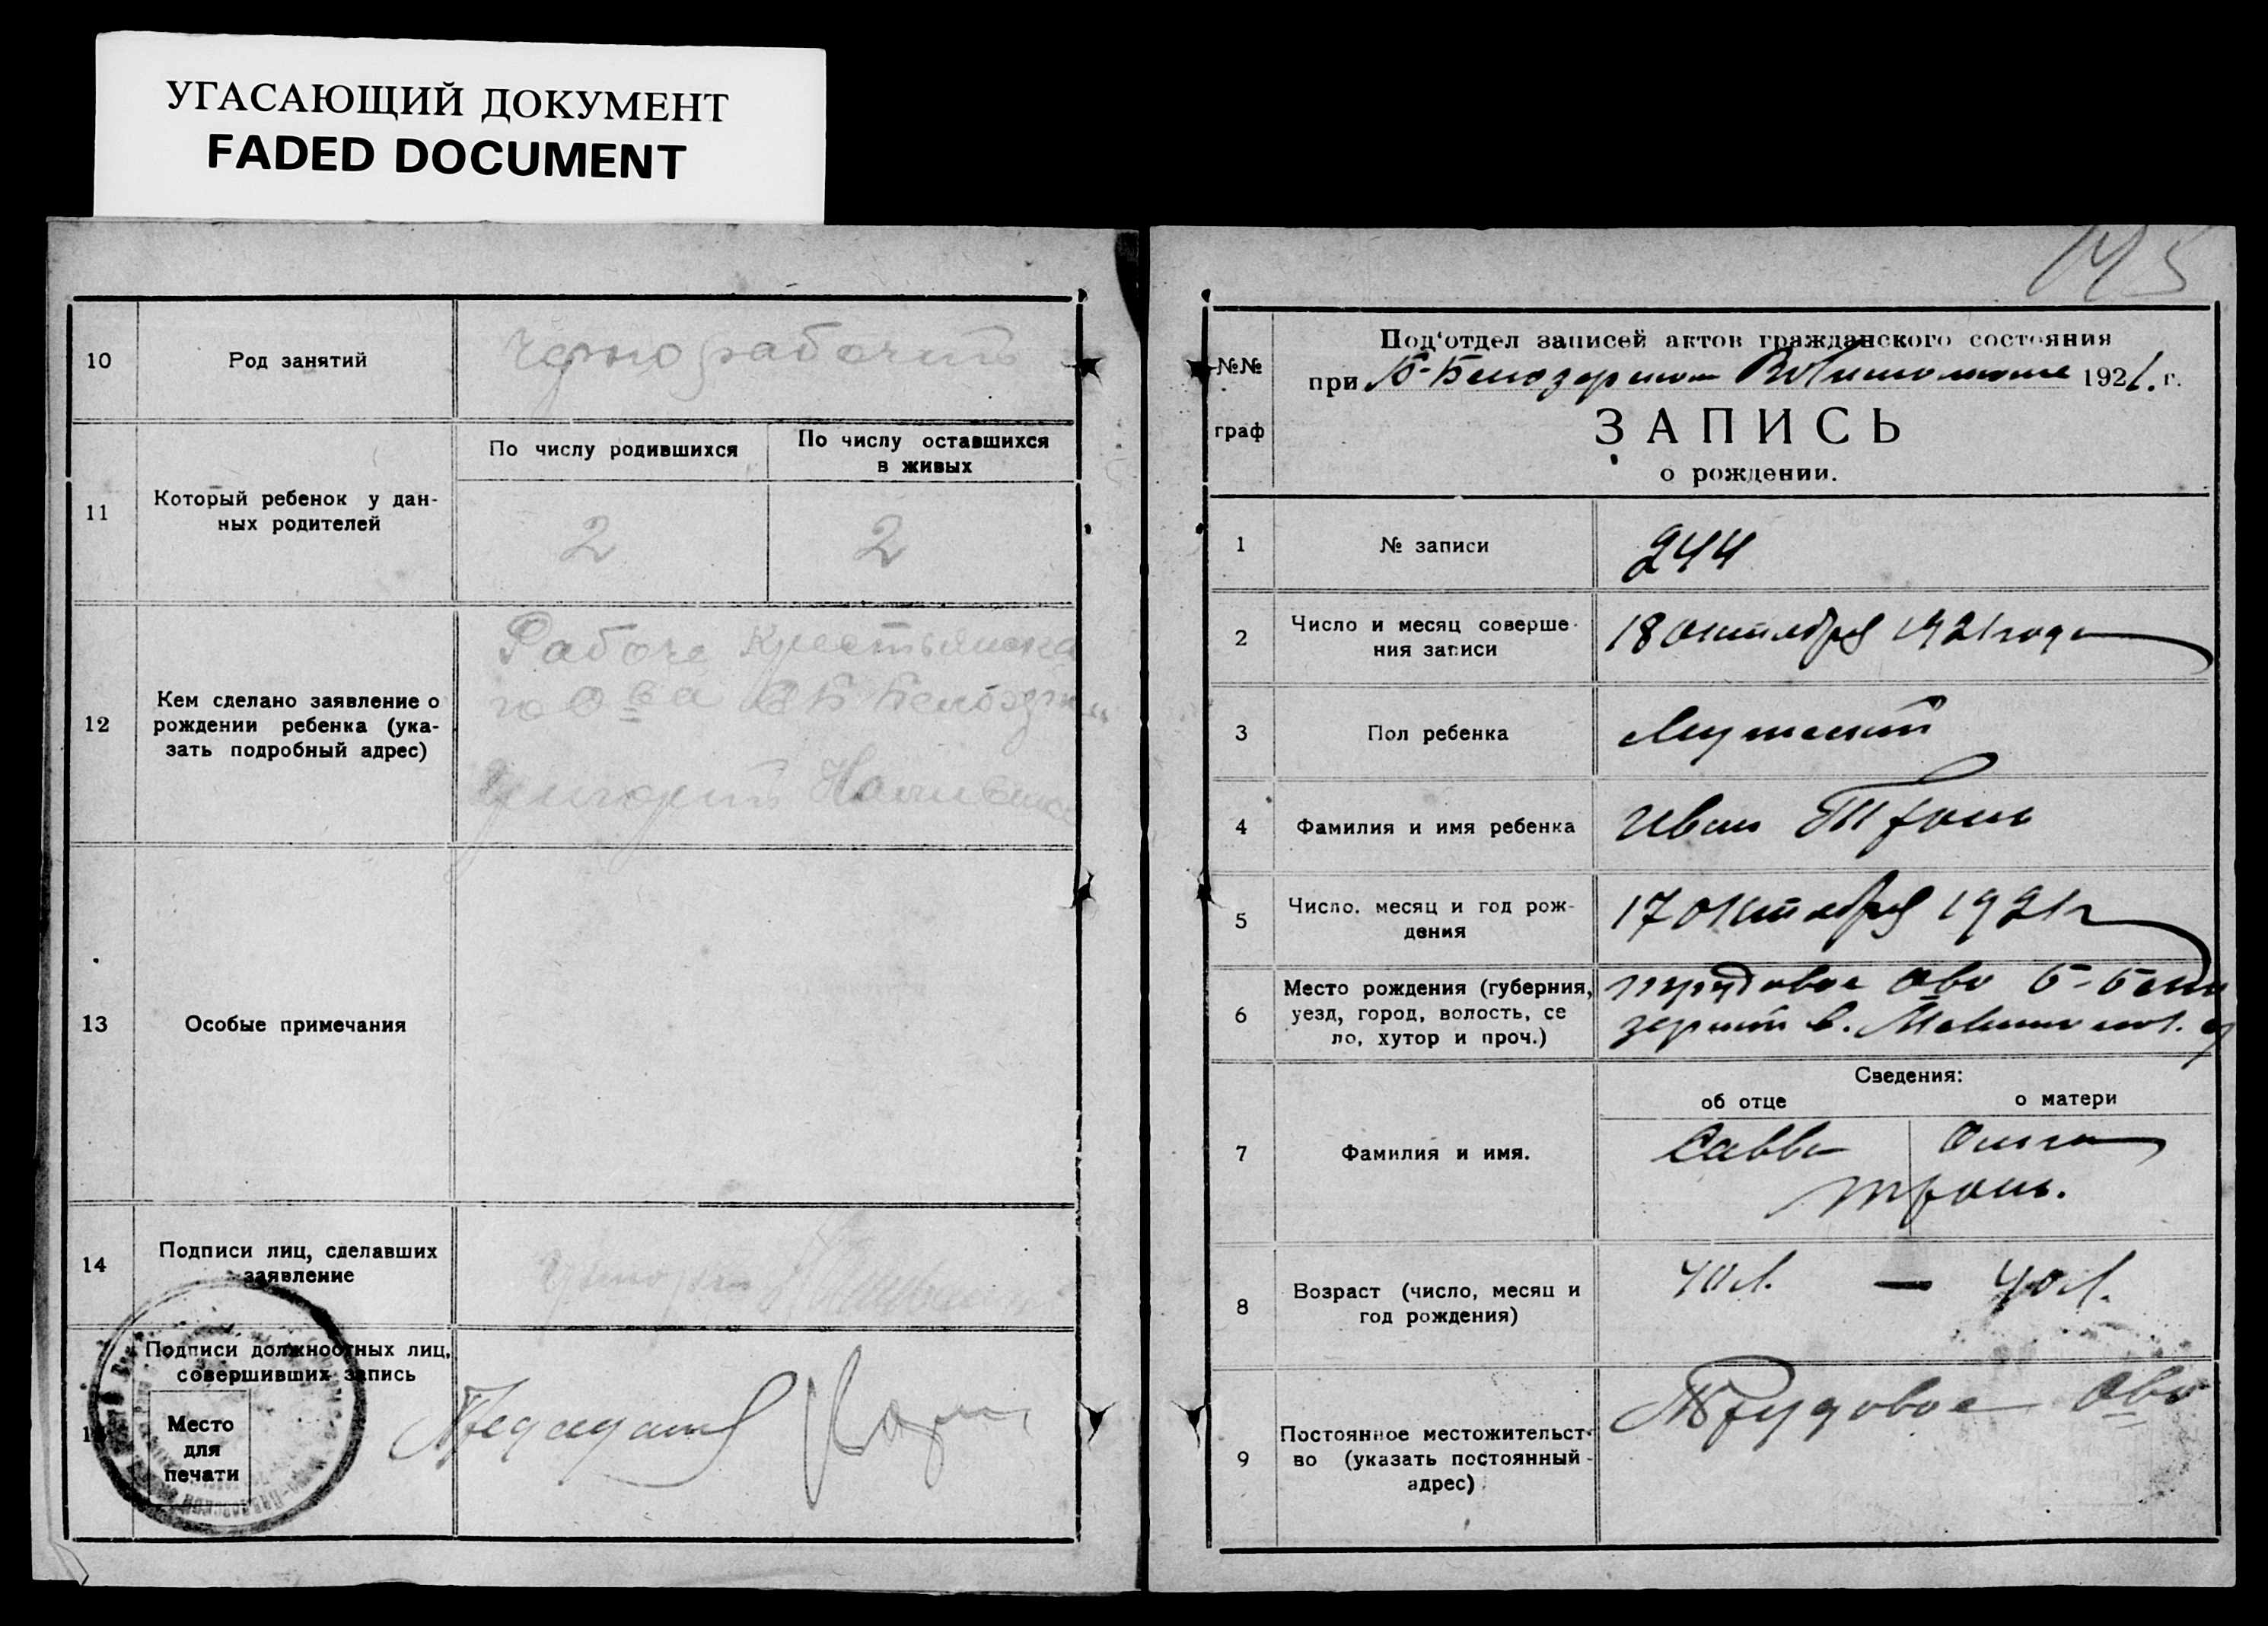 УГАСАЮЩИЙ ДОКУМЕНТ
FADED DOCUMENT
10
Род занятий
Чернорабочий
11
Который ребенок у дан-
ных родителей
По числу родившихся
По числу оставшихся
в живых
2
2
12
Кем сделано заявление о
рождении ребенка (ука-
зать подробный адрес)
Рабоче Крестьянска
го О-ва
Григорий
13
Особые примечания
14
Подписи лиц, сделавших
заявление
Подписи должностных лиц,
совершивших запись
Место
для
печати
№№
граф
Под'отдел записей актов гражданского состояния
при Б-Белозерском 1921. г.
ЗАПИСЬ
о рождении.
1
№ записи
244
2
Число и месяц соверше-
ния записи
18 октября 1921 года
3
Пол ребенка
Мужеский
4
Фамилия и имя ребенка
Иван Троць
5
Число. месяц и год рож-
дения
17 октября 1921 г
6
Место рождения (губерния,
уезд, город, волость, се
ло, хутор и проч.)
трудовое Ово Б-Бело
зерской в. у
7
Фамилия и имя.
Сведения:
об отце
о матери
Савва
Ольга
Троць.
8
Возраст (число, месяц и
год рождения)
40 л. — 40 л.
9
Постоянное местожительст-
во (указать постоянный
адрес)
Трудовое Ово